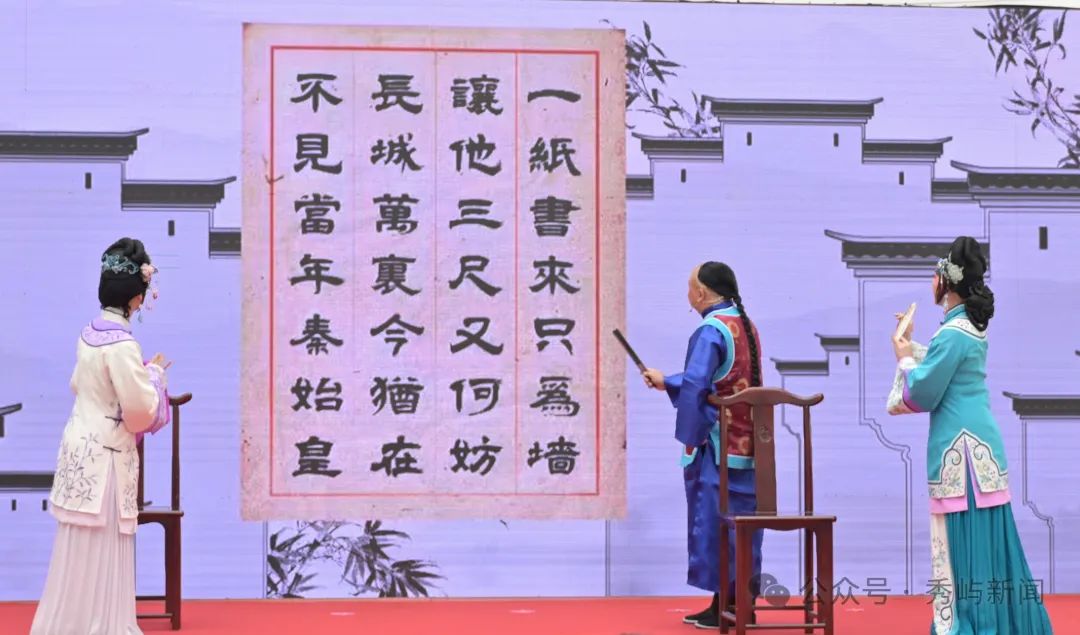 一紙書來只爲墙
讓他三尺又何妨
長城萬裏今猶在
不見當年秦始皇
公众号 · 秀屿新闻